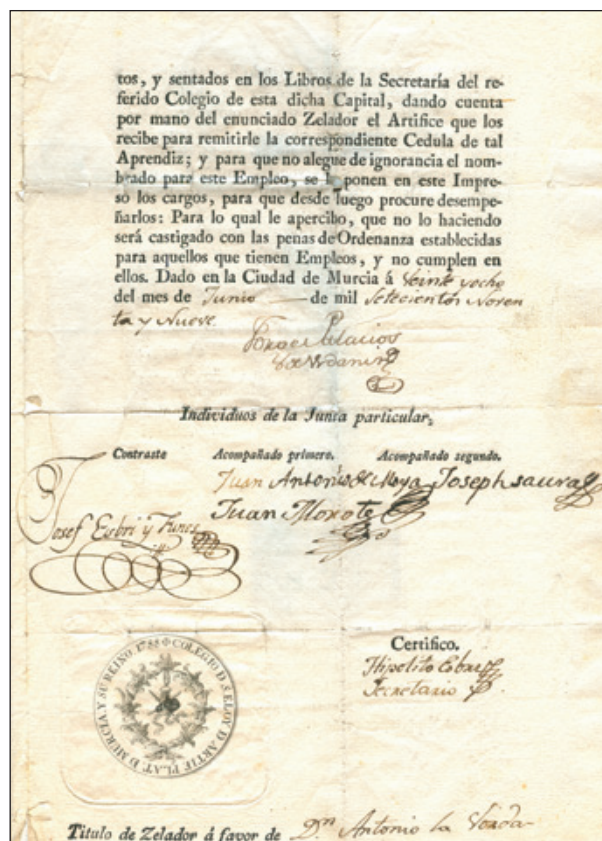 tos, y sentados en los Libros de la Secretaría del re-
ferido Colegio de esta dicha Capital, dando cuenta
por mano del enunciado Zelador el Artifice que los
recibe para remitirle la correspondiente Cedula de tal
Aprendiz; y para que no alegue de ignorancia el nom-
brado para este Empleo, se le ponen en este Impre-
so los cargos, para que desde luego procure desempe-
ñarlos: Para lo qual le apercibo, que no lo haciendo
será castigado con las penas de Ordenanza establecidas
para aquellos que tienen Empleos, y no cumplen en
ellos. Dado en la Ciudad de Murcia á Veinte y ocho
del mes de Junio de mil Setecientos Noven
ta y Nueve
Palacios
Individuos de la Junta particular.
Contraste Acompañado primero. Acompañado segundo.
Juan Antonio de Moya Joseph saura
Juan Morote
Josef Esbri y Funes
Certifico.
Hipolito Esbri
Secretario
COLEGIO D. S. ELOY D ARTIF. PLAT. D MURCIA. Y SU REINO 1788
Titulo de Zelador á favor de Dn Antonio la